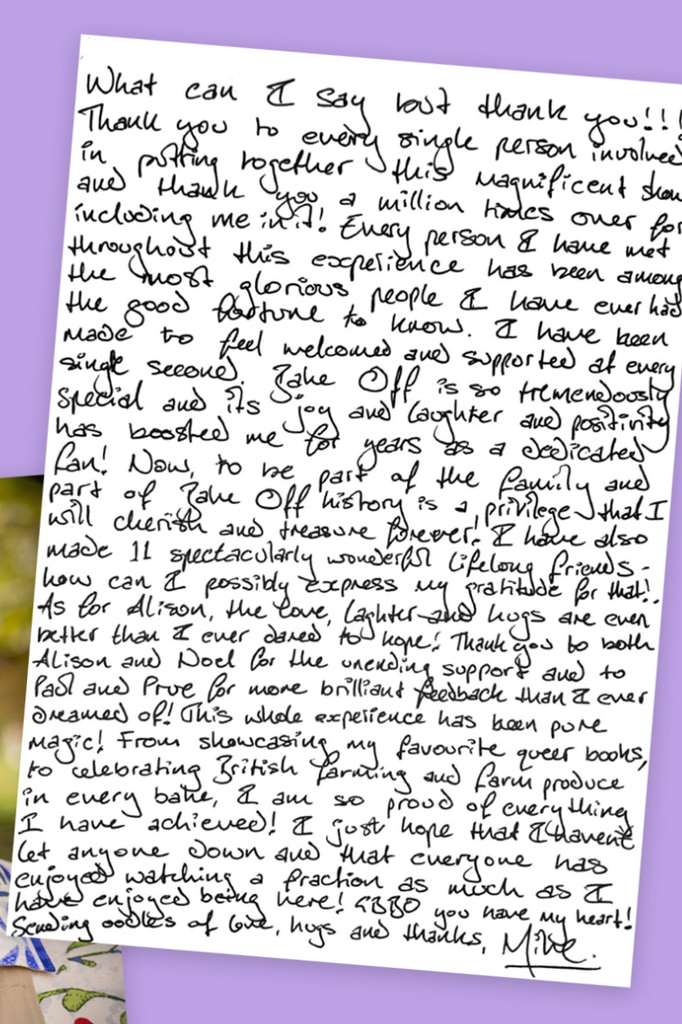 What can I say but thank you!!!
Thank you to every single person involved
in putting together this magnificent show
and thank you a million times over for
including me in it! Every person I have met
throughout this experience has been among
the most glorious people I have ever had
the good fortune to know. I have been
made to feel welcomed and supported at every
single second. Bake Off is so tremendously
special and its joy and laughter and positivity
has boosted me for years as a dedicated
fan! Now, to be part of the family and
part of Bake Off history is a privilege that I
will cherish and treasure forever! I have also
made 11 spectacularly wonderful lifelong friends -
how can I possibly express my gratitude for that!.
As for Alison, the love, laghter and hugs are even
better than I ever dared to hope! Thank you to both
Alison and Noel for the unending support and to
Paul and Prue for more brilliant feedback than I ever
dreamed of! This whole experience has been pure
magic! From showcasing my favourite queer books,
to celebrating British farming and farm produce
in every bake, I am so proud of everything
I have achieved! I just hope that I havent
let anyone down and that everyone has
enjoyed watching a fraction as much as I
have enjoyed being here! GBBO you have my heart!
Sending oodles of love, hugs and thanks, Mike.